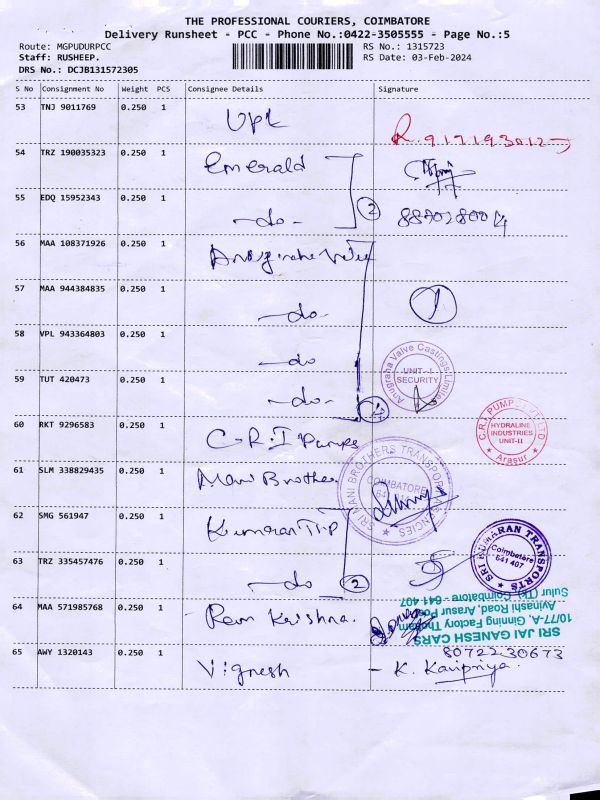 THE PROFESSIONAL COURIERS, COIMBATORE
Delivery Runsheet - PCC - Phone No.:0422-3505555 - Page No.:5
Route: MGPUDURPCC RS No.: 1315723
Staff: RUSHEEP. RS Date: 03-Feb-2024
DRS No.: DCJB131572305
S No Consignment No Weight PCS Consignee Details Signature
53 TNJ 9011769 0.250 1 UPL
54 TRZ 190035323 0.250 1 Emerald
55 EDQ 15952343 0.250 1 -do- 2
56 MAA 108371926 0.250 1
57 MAA 944384835 0.250 1 -do- 1
58 VPL 943364803 0.250 1 -do
Anugraha Valve Castings Limited
UNIT - I
SECURITY
59 TUT 420473 0.250 1 -do-
60 RKT 9296583 0.250 1 C.R.I Pumps
C.R.I. PUMPS PVT LTD
HYDRALINE
INDUSTRIES
UNIT-II
Arasur
61 SLM 338829435 0.250 1 Mani Brother
SRI MANI BROTHERS TRANSPORT AGENCIES
COIMBATORE
62 SMG 561947 0.250 1 Kumaran
SRI KUMARAN TRANSPORTS
Coimbatore
641 407
63 TRZ 335457476 0.250 1 -do 2
64 MAA 571985768 0.250 1 Ram Krishna.
SRI JAI GANESH CARS
10/77-A, Ginning Factory Thottam
Avinashi Road, Arasur Post
Sulur (Tk) Coimbatore - 641 407
65 AWY 1320143 0.250 1 Vignesh - K. Kavipriya.
8072230673